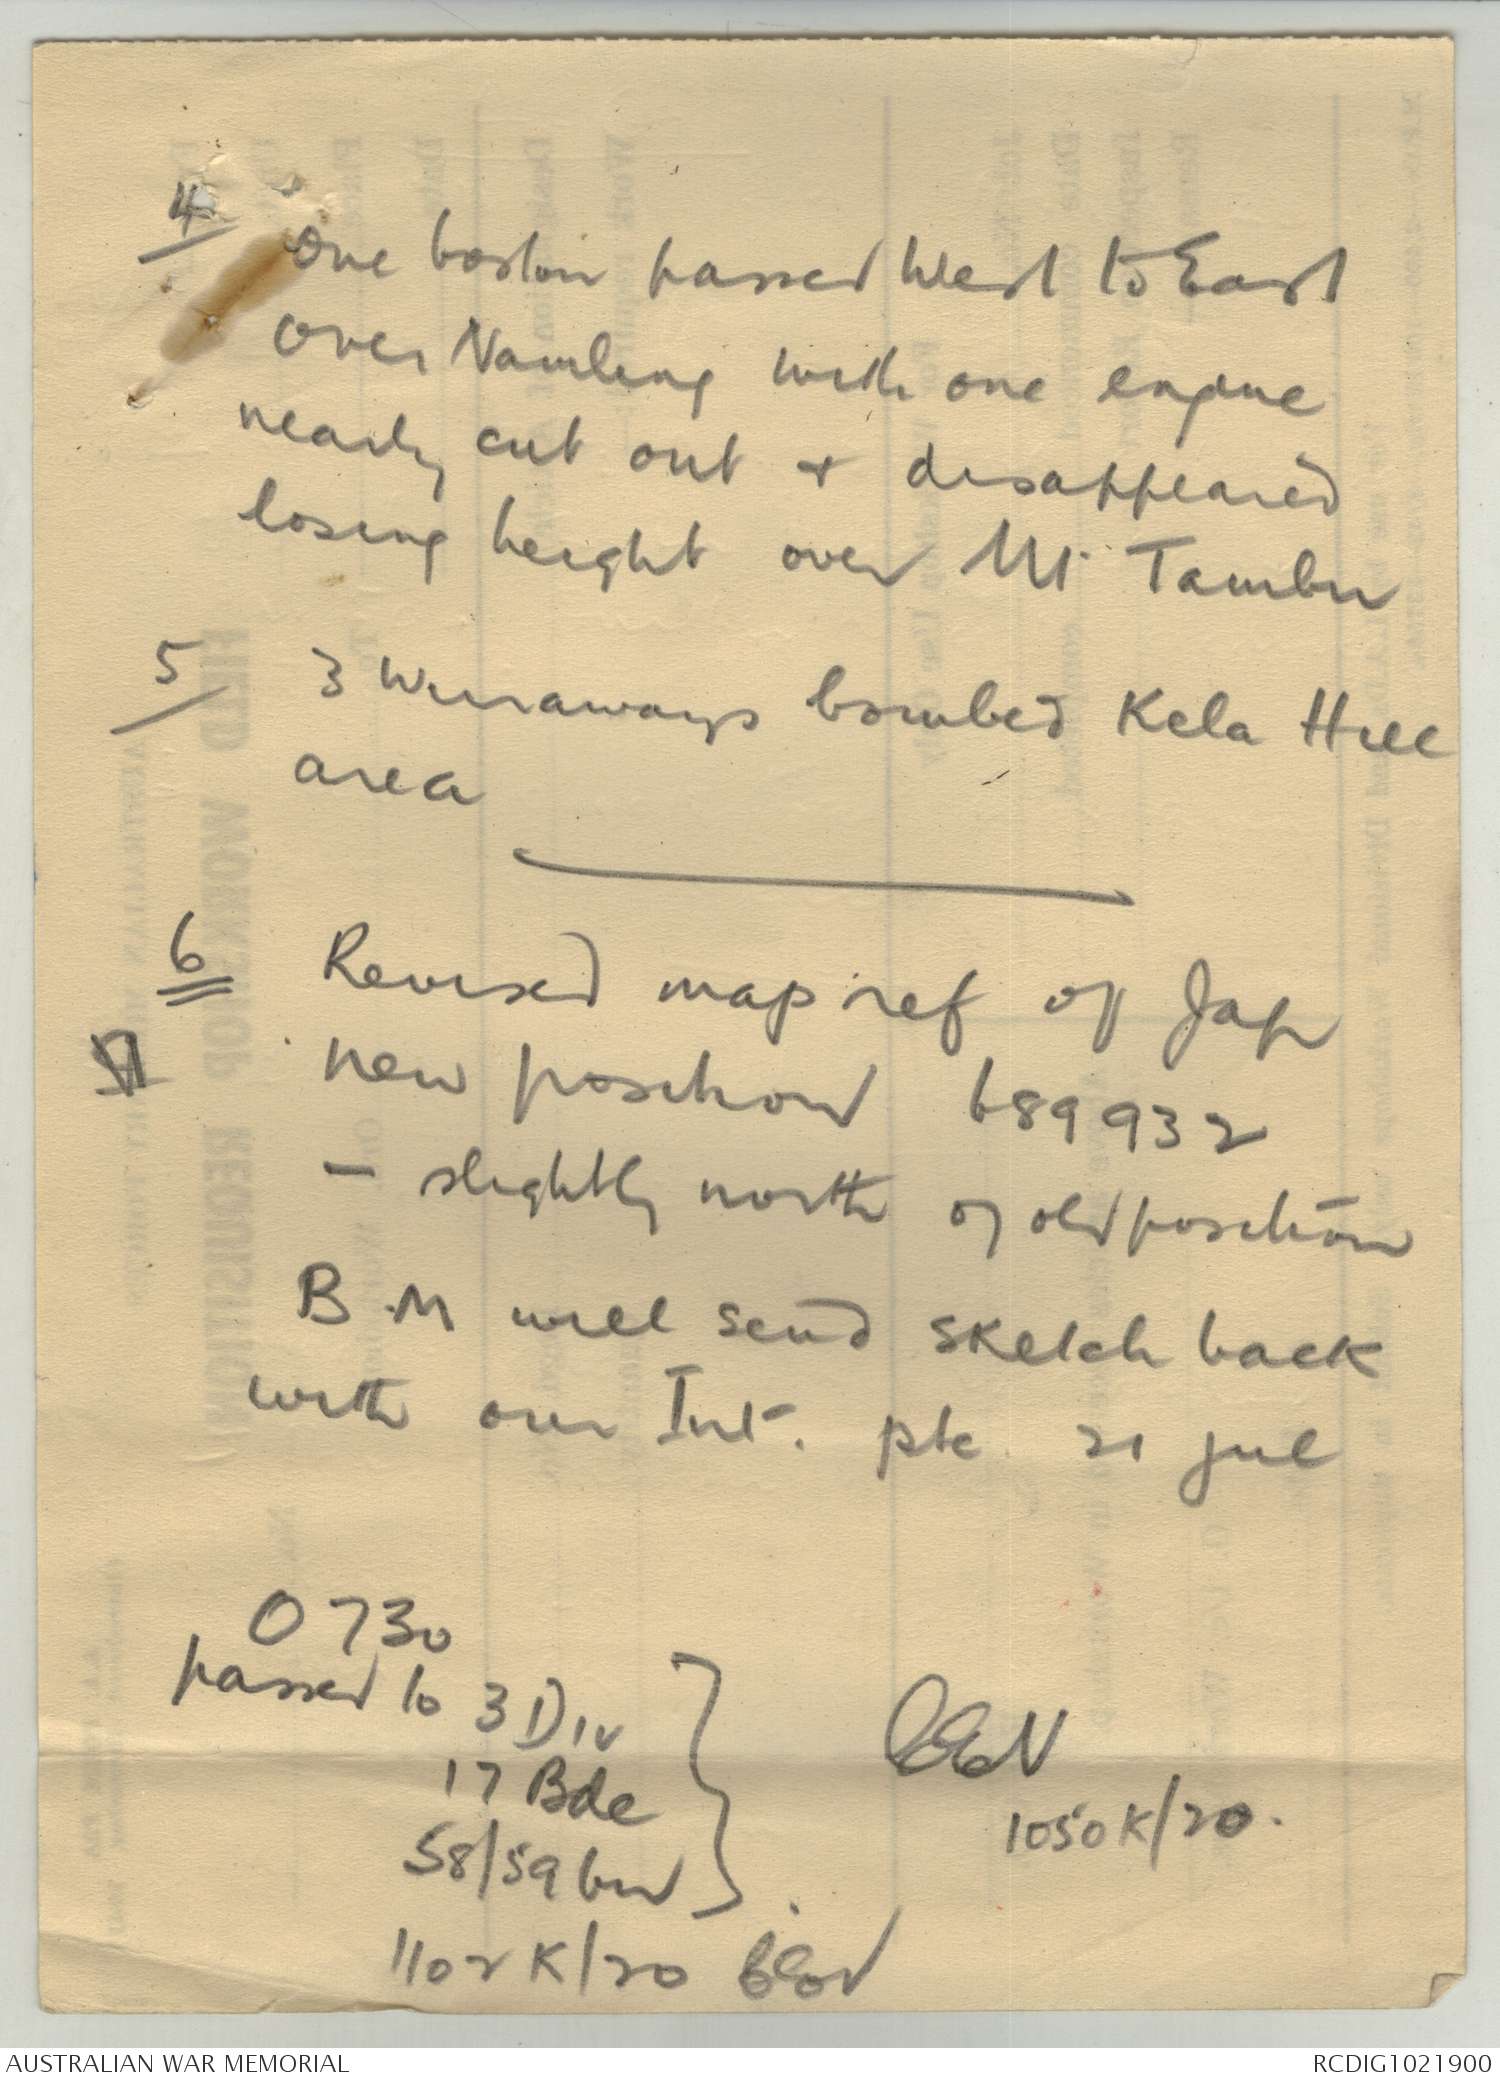 4/ One boston passed West to East
over Namling with one engine
nearly cut out + disappeared
losing height over Mt. Tambu
5/ 3 Wirraways bombed Kela Hill
area
6 Revised map ref of Jap
new position 689932
- slightly north of old position
B.M will send sketch back
with our Int. pkt. 21 Jul
0730
passed to 3 Div
17 Bde
58/59 bn
1050K/20.
1102K/20
AUSTRALIAN WAR MEMORIAL
RCDIG1021900